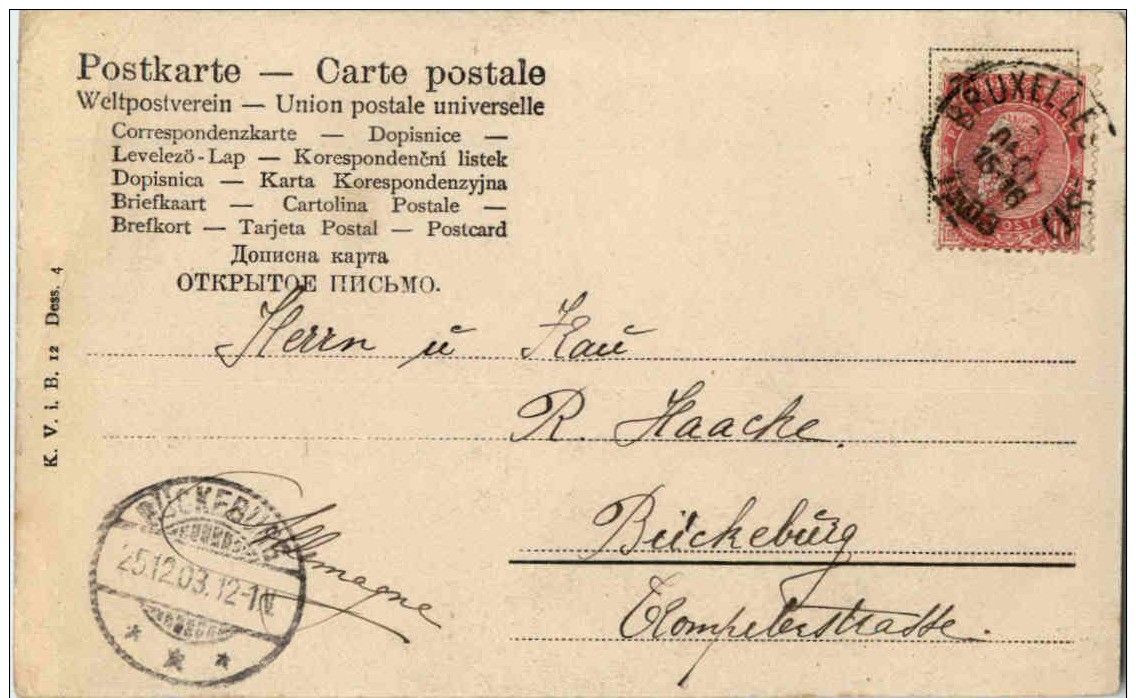 Postkarte — Carte postale
Weltpostverein — Union postale universelle
Correspondenzkarte — Dopisnice —
Levelező-Lap — Korespondenční listek
Dopisnica — Karta Korespondenzyjna
Briefkaart — Cartolina Postale —
Brefkort — Tarjeta Postal — Postcard
Дописна карта
ОТКРЫТОЕ ПИСЬМО.
K. V. i. B. 12 Dess. 4
BRUXELLES
15-16
Herrn u Frau
R. Haacke.
Bückeburg
Allemagne
BÜCKEBURG
25.12.03.12-1N.